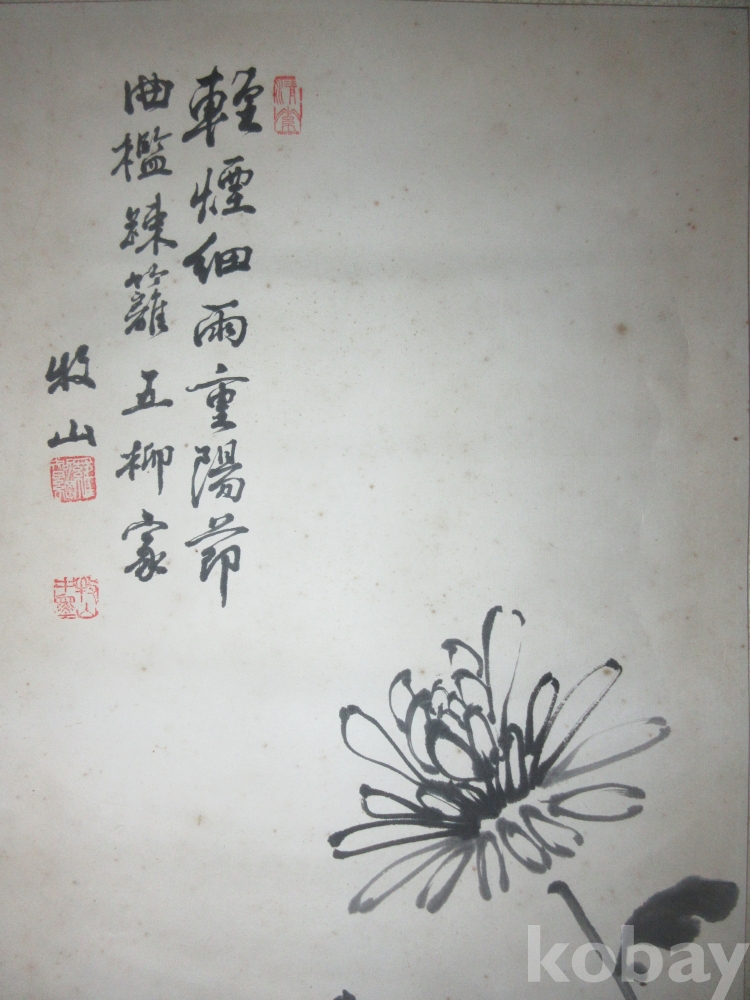 輕煙細雨重陽節
曲檻疎籬五柳家
牧山
kobay